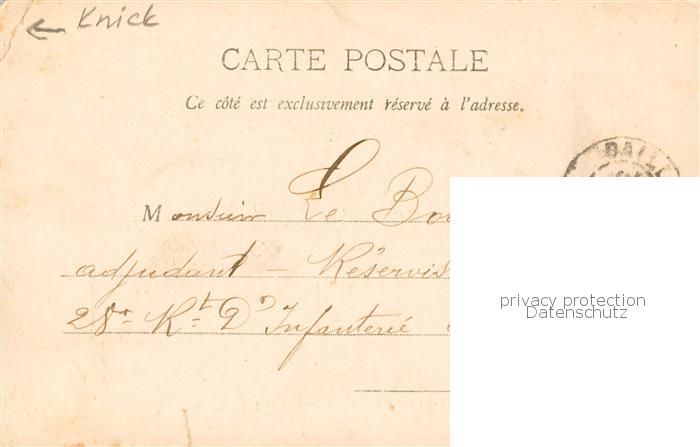 Knick
CARTE POSTALE
Ce côté est exclusivement réservé à l'adresse.
BAILL
Monsieur Le Bou
adjudant — Réservis
28e Rt D'Infanterie
privacy protection
Datenschutz